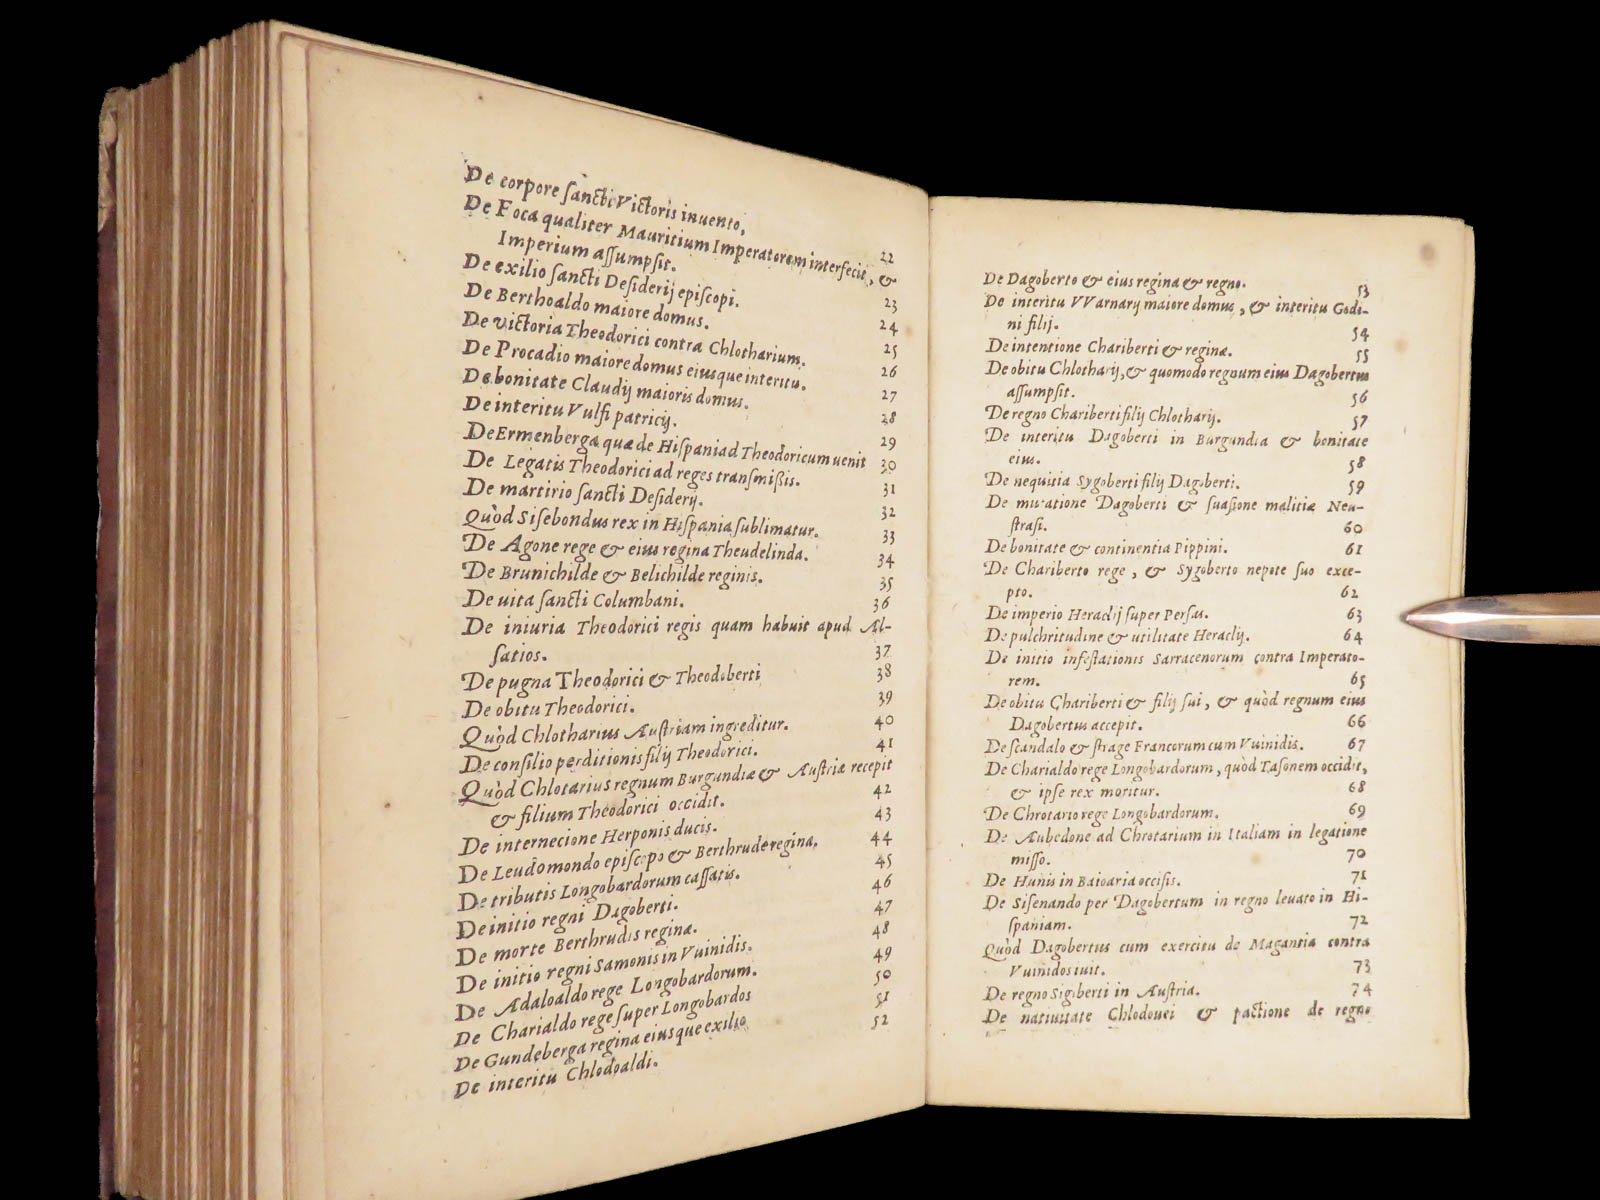 De corpore ſancti Victoris inuento, 22
De Foca qualiter Mauritium Imperatorem interfecit, &
Imperium aſſumpſit. 23
De exilio ſancti Deſiderij epiſcopi. 24
De Berthoaldo maiore domus. 25
De victoria Theodorici contra Chlotharium. 26
De Procadio maiore domus eiusque interitu. 27
De bonitate Claudij maioris domus. 28
De interitu Vulfi patricij. 29
De Ermenberga quæ de Hiſpania ad Theodoricum uenit 30
De Legatis Theodorici ad reges tranſmißis. 31
De martirio ſancti Deſiderij. 32
Quòd Siſebondus rex in Hiſpania ſublimatur. 33
De Agone rege & eius regina Theudelinda. 34
De Brunichilde & Belichilde reginis. 35
De uita ſancti Columbani. 36
De iniuria Theodorici regis quam habuit apud Al-
ſatios. 37
De pugna Theodorici & Theodoberti 38
De obitu Theodorici. 39
Quòd Chlotharius Auſtriam ingreditur. 40
De conſilio perditionis filij Theodorici. 41
Quòd Chlotarius regnum Burgundiæ & Auſtriæ recepit
& filium Theodorici occidit. 42
De internecione Herponis ducis. 43
De Leudomondo epiſcopo & Berthrude regina. 44
De tributis Longobardorum caſſatis. 45
De initio regni Dagoberti. 46
De morte Berthrudis reginæ. 47
De initio regni Samonis in Vuinidis. 48
De Adaloaldo rege Longobardorum. 49
De Charialdo rege ſuper Longobardos 50
De Gundeberga regina eiusque exilio 51
De interitu Chlodoaldi. 52
De Dagoberto & eius regina & regno. 53
De interitu VVarnarij maiore domus, & interitu Godi-
ni filij. 54
De intentione Chariberti & reginæ. 55
De obitu Chlotharij, & quomodo regnum eius Dagobertus
aſſumpſit. 56
De regno Chariberti filij Chlotharij. 57
De interitu Dagoberti in Burgundia & bonitate
eius. 58
De nequitia Sygoberti filij Dagoberti. 59
De mutatione Dagoberti & ſuaſione malitiæ Neu-
ſtraſi. 60
De bonitate & continentia Pippini. 61
De Chariberto rege, & Sygoberto nepote ſuo exce-
pto. 62
De imperio Heraclij ſuper Perſas. 63
De pulchritudine & utilitate Heraclij. 64
De initio infeſtationis Sarracenorum contra Imperato-
rem. 65
De obitu Chariberti & filij ſui, & quòd regnum eius
Dagobertus accepit. 66
De ſcandalo & ſtrage Francorum cum Vuinidis. 67
De Charialdo rege Longobardorum, quòd Taſonem occidit,
& ipſe rex moritur. 68
De Chrotario rege Longobardorum. 69
De Aubedone ad Chrotarium in Italiam in legatione
miſſo. 70
De Hunis in Baioaria occiſis. 71
De Siſenando per Dagobertum in regno leuato in Hi-
ſpaniam. 72
Quòd Dagobertus cum exercitu de Magantia contra
Vuinidos iuit. 73
De regno Sigiberti in Auſtria. 74
De natiuitate Chlodouei & pactione de regno